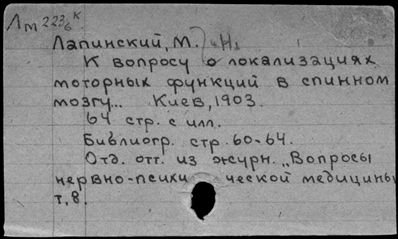 Лм 223/6 к
Лапинский, М. Н.
К вопросу о локализациях
моторных функций в спинном
мозгу... Киев, 1903.
64 стр. с илл.
Библиогр. стр. 60-64.
Отд. отт. из журн. „Вопросы
нервно-психической медицины
т. 8.